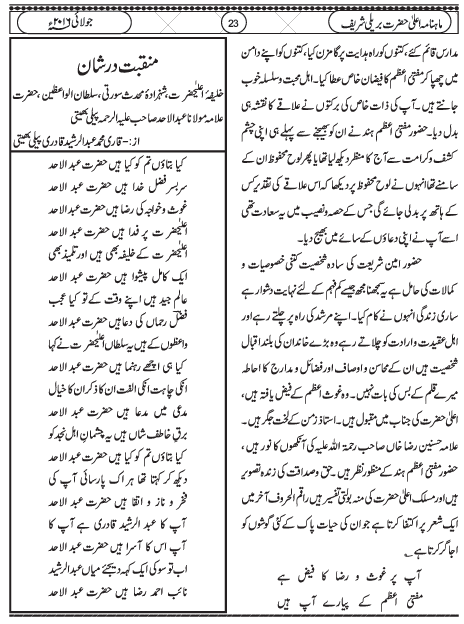 ماہنامہ اعلیٰ حضرت بریلی شریف
23
جولائی ۲۰۱۶ء
مدارس قائم کئے، کتنوں کو راہ ہدایت پر گامزن کیا، کتنوں کو اپنے دامن
میں چھپا کر مفتی اعظم کا فیضان خاص عطا کیا۔ اہل محبت و سلسلہ خوب
جانتے ہیں۔ آپ کی ذات خاص کی برکتوں نے علاقے کا نقشہ ہی
بدل دیا۔ حضور مفتی اعظم ہند نے ان کو بھیجنے سے پہلے ہی اپنی چشم
کشف و کرامت سے آج کا منظر دیکھ لیا تھا یا پھر لوح محفوظ ان کے
سامنے تھا انہوں نے لوح محفوظ پر دیکھا کہ اس علاقے کی تقدیر کس
کے ہاتھ پر بدلی جائے گی جس کے حصہ و نصیب میں یہ سعادت تھی
اسے آپ نے اپنی دعاؤں کے سائے میں بھیج دیا۔
حضور امین شریعت کی سادہ شخصیت کتنی خصوصیات و
کمالات کی حامل ہے یہ سمجھنا مجھ جیسے کم فہم کے لئے نہایت دشوار ہے
ساری زندگی انہوں نے کام کیا۔ اپنے مرشد کی راہ پر چلتے رہے اور
اہل عقیدت و ارادت کو چلاتے رہے وہ بڑے خاندان کی بلند اقبال
شخصیت ہیں ان کے محاسن و اوصاف اور فضائل و مدارج کا احاطہ
میرے قلم کے بس کی بات نہیں۔ وہ غوث اعظم کے فیض یافتہ ہیں،
اعلیٰ حضرت کی جناب میں مقبول ہیں۔ استاذ زمن کے لخت جگر ہیں۔
علامہ حسنین رضا خاں صاحب رحمۃ اللہ علیہ کی آنکھوں کا نور ہیں،
حضور مفتی اعظم ہند کے منظور نظر ہیں۔ حق و صداقت کی زندہ تصویر
ہیں اور مسلک اعلیٰ حضرت کی منہ بولتی تفسیر ہیں راقم الحروف آخر میں
ایک شعر پر اکتفا کرتا ہے جو ان کی حیات پاک کے کئی گوشوں کو
اجاگر کرتا ہے۔
آپ پر غوث و رضا کا فیض ہے
مفتی اعظم کے پیارے آپ ہیں
منقبت درشان
خلیفۂ اعلیٰحضرت، شہزادۂ محدث سورتی، سلطان الواعظین، حضرت
علامہ مولانا عبد الاحد صاحب علیہ الرحمہ پیلی بھیتی
از:- قاری محمد عبد الرشید قادری پیلی بھیتی
کیا بتاؤں تم کو کیا ہیں حضرت عبد الاحد
سربسر فضل خدا ہیں حضرت عبد الاحد
غوث و خواجہ کی رضا ہیں حضرت عبد الاحد
اعلیٰحضرت پر فدا ہیں حضرت عبد الاحد
اعلیٰحضرت کے خلیفہ بھی ہیں اور تلمیذ بھی
ایک کامل پیشوا ہیں حضرت عبد الاحد
عالم جید ہیں اپنے وقت کے تو کیا عجب
فضل رحماں کی دعا ہیں حضرت عبد الاحد
واعظوں کے ہیں یہ سلطاں اعلیٰحضرت نے کہا
کیا ہی اچھے رہنما ہیں حضرت عبد الاحد
انکی چاہت انکی الفت ان کا ذکر ان کا خیال
مدعیٰ میں مدعا ہیں حضرت عبد الاحد
برق خاطف شاں ہیں یہ چشمان اہل نجد کو
کیا بتاؤں تم کو کیا ہیں حضرت عبد الاحد
دیکھ کر کہتا تھا ہر اک پارسائی آپ کی
فخر و ناز و اتقا ہیں حضرت عبد الاحد
آپ کا عبد الرشید قادری ہے آپ کا
آپ اس کا آسرا ہیں حضرت عبد الاحد
اب تو سو کی ایک کہہ دیجئے میاں عبد الرشید
نائب احمد رضا ہیں حضرت عبد الاحد